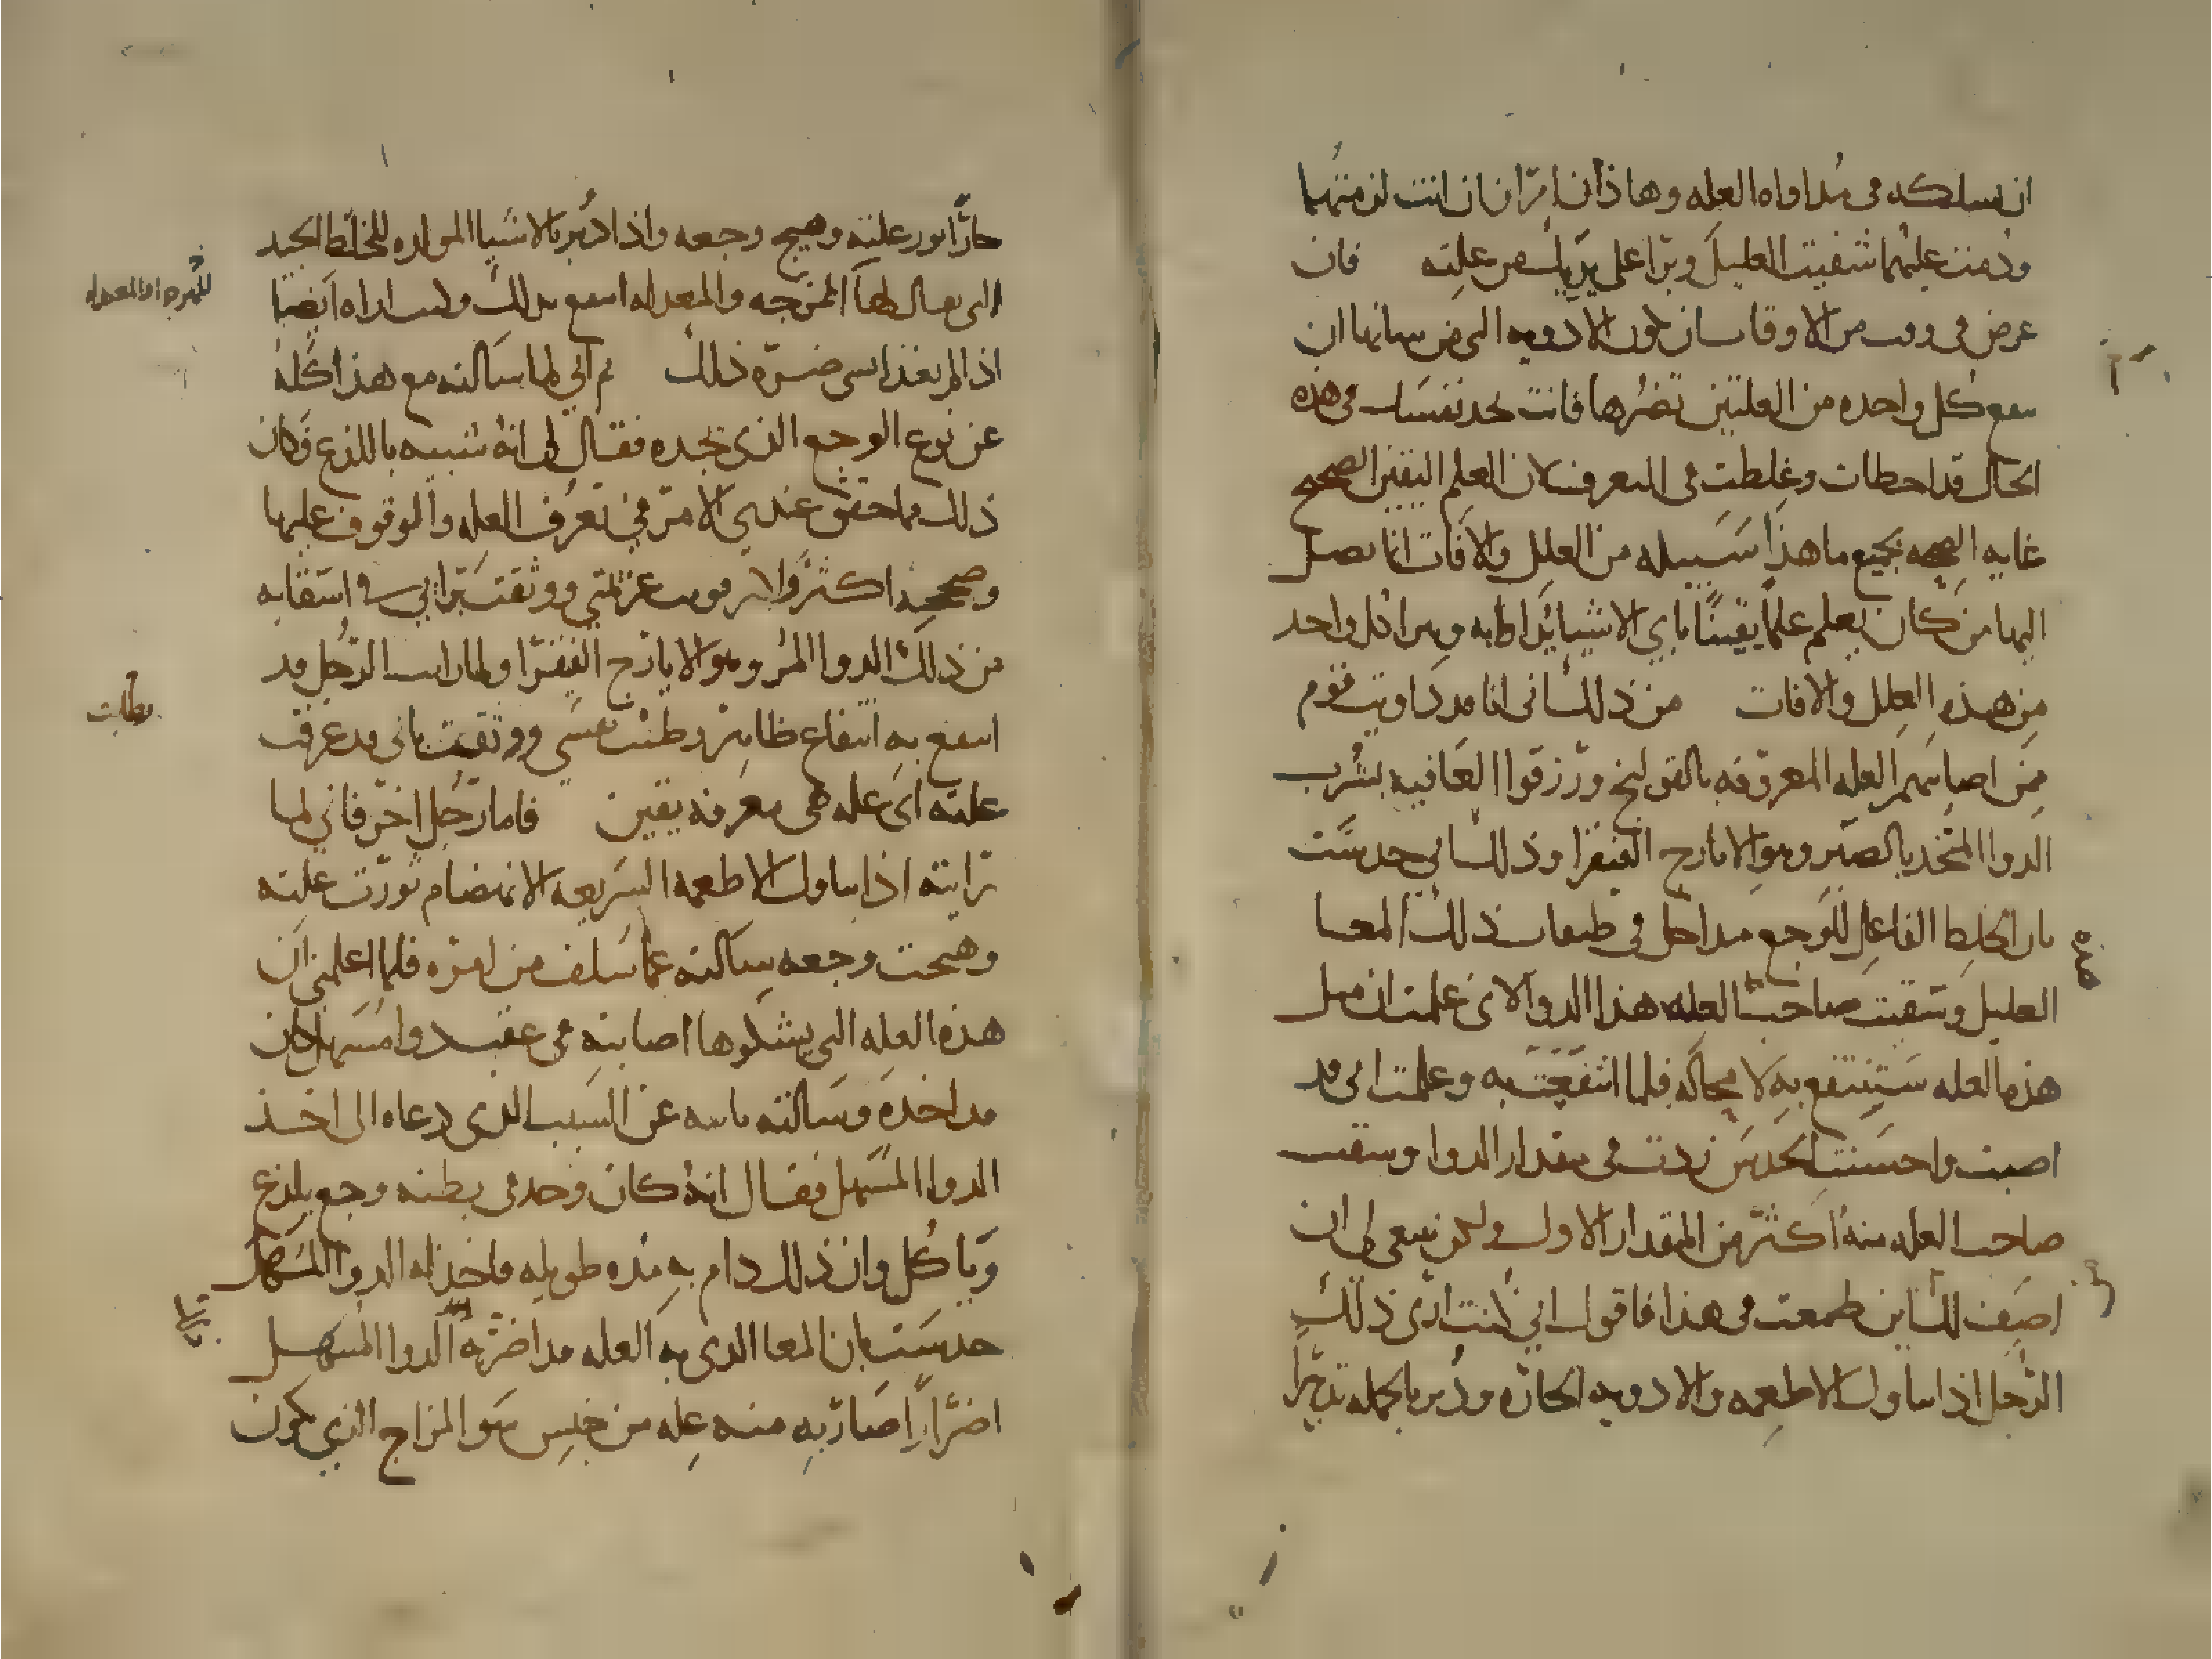 ان نسلكه في مداواه العله وهاذان امران ان انت لزمتهما
ودمت عليهما شفيت العليل وبرا على يديك من علته فان
عرض في وقت من الاوقات ان تكون الادويه التي من شانها ان
تنفع كل واحده من العلتين تضرها فانت تجد نفسك في هذه
الحال قد اخطات وغلطت في التعرف لان العلم اليقين الصحيح
غايه الصحه بجميع ما هذا سبيله من العلل والافات انما يصل
اليها من كان يعلم علما يقينا باي الاشيا يداوا به ويبرا كل واحد
من هذه العلل والافات من ذلك اني انا قد داويت قوم
ممن اصابتهم العله المعروفه بالقولنج ورزقوا العافيه بشرب
الدوا المتخذ بالصبر وهو الايارج الفيقرا وذلك اني حدست
بان الخلط الفاعل للوجع مداخل في طبقات ذلك المعا
العليل وسقيت صاحب العله هذا الدوا لاني علمت ان مثل
هذه العله ستنتفع به لا محاله فلما انتفعت به وعلمت اني قد
اصبت واحسنت الحدس زدت في مقدار الدوا وسقيت
صاحب العله منه اكثر من المقدار الاول ولكن ينبغي لي ان
اصف لك اين طمعت في هذا فاقول اني كنت ارى ذلك
الرجل اذا تناول الاطعمه والادويه الحاره ودبر بالجمله تدبيرا
حارا تور علته وهيج وجعه واذا دبر بالاشيا المولده للخلط الجيد
التي يقال لها الممزجه والمعدله انتفع بذلك وكنت اراه ايضا
اذا لم يغذا بشي ضره ذلك ثم اني لما سالته مع هذا كله
عن نوع الوجع الذي يجده فقال لي انه شبيه باللذع فكان
ذلك مما حقق عندي الامر في تعرف العله والوقوف عليها
وصححه اكثر ووثقت براي في استقايه
من ذلك الدوا المر وهو الايارج الفيقرا ولما رايت الرجل قد
انتفع به انتفاع ظاهر وطنت نفسي ووثقت باني قد عرفت
علته اي عله هي معرفه يقين فاما رجل اخر فاني لما
رايته اذا تناول الاطعمه السريعه الانهضام تورت علته
وهيجت وجعه سالته عما سلف من امره فلما اعلمني ان
هذه العله التي يشكوها اصابته في عقب دوا مسهل كان
قد اخذه وسالته ثانيه عن السبب الذي دعاه الى اخذ
الدوا المسهل فقال انه كان وجد في بطنه وجع يلذع
وياكل وان ذلك دام به مده طويله فاخذ له الدوا المسهل
حدست بان المعا الذي به العله قد اضر به الدوا المسهل
اضرارا صار به منه عله من جنس سو المزاج الذي يكون